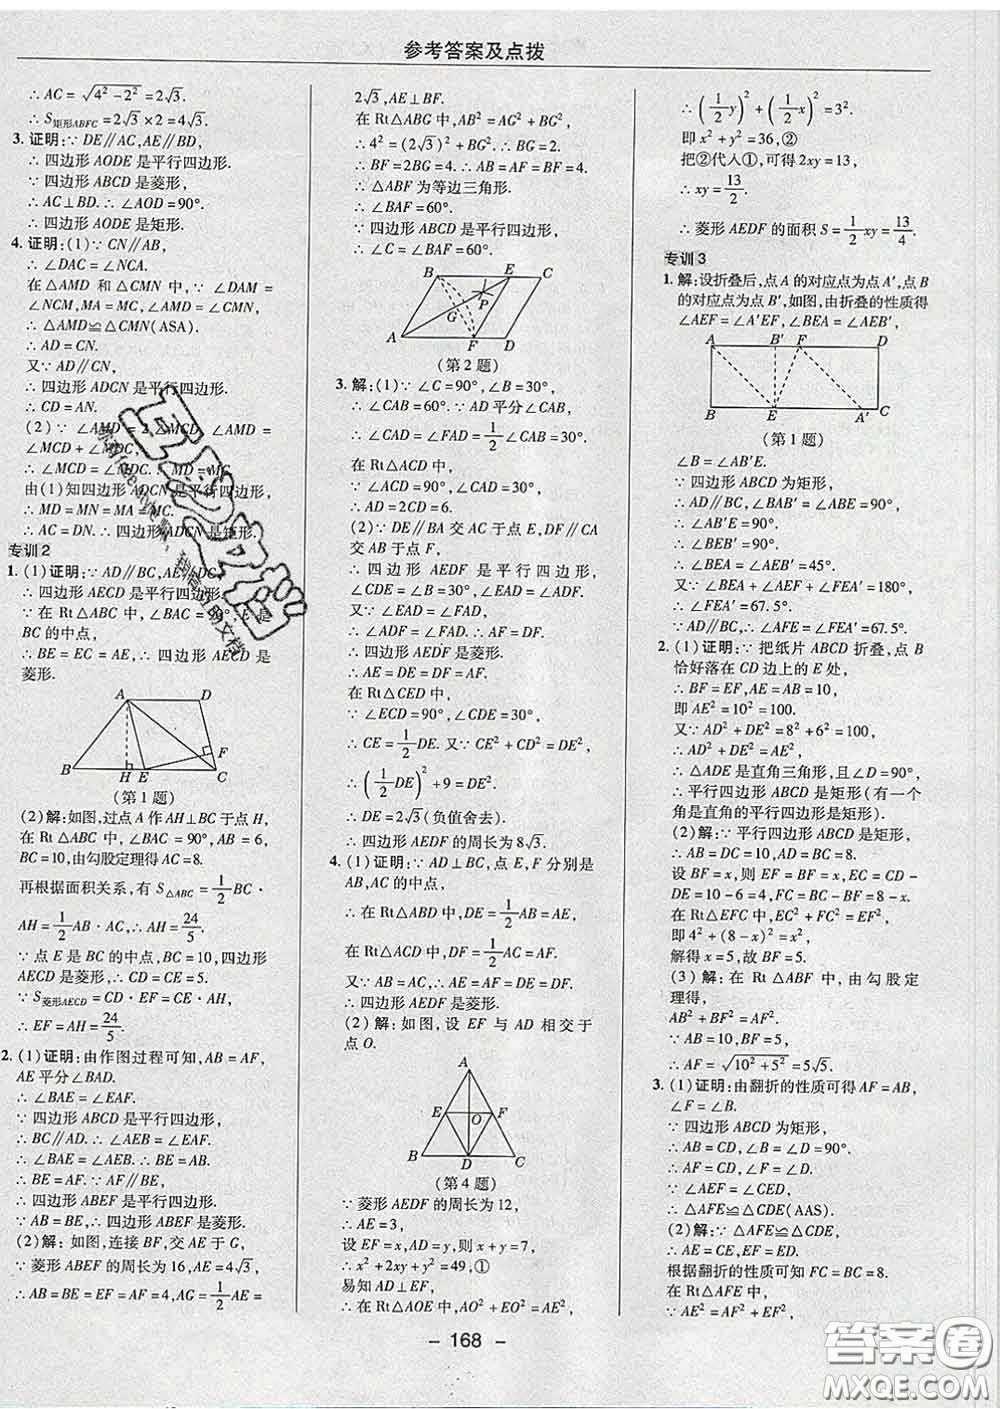 参考答案及点拨
∴ AC = √(4²－2²) = 2√3.
∴ S矩形ABFC = 2√3 × 2 = 4√3.
3. 证明:∵ DE∥AC,AE∥BD,
∴ 四边形 AODE 是平行四边形.
∵ 四边形 ABCD 是菱形,
∴ AC⊥BD. ∴ ∠AOD = 90°.
∴ 四边形 AODE 是矩形.
4. 证明:(1)∵ CN∥AB,
∴ ∠DAC = ∠NCA.
在 △AMD 和 △CMN 中,∵ ∠DAM =
∠NCM,MA = MC,∠AMD = ∠CMN,
∴ △AMD≌△CMN(ASA).
∴ AD = CN.
又∵ AD∥CN,
∴ 四边形 ADCN 是平行四边形.
∴ CD = AN.
(2)∵ ∠AMD = 2∠MCD, ∠AMD =
∠MCD + ∠MDC,
∴ ∠MCD = ∠MDC. ∴ MD = MC.
由(1)知四边形 ADCN 是平行四边形,
∴ MD = MN = MA = MC.
∴ AC = DN. ∴ 四边形 ADCN 是矩形.
专训2
1. (1)证明:∵ AD∥BC,AE∥DC,
∴ 四边形 AECD 是平行四边形.
∵ 在 Rt△ABC 中,∠BAC = 90°,E 是
BC 的中点,
∴ BE = EC = AE, ∴ 四边形 AECD 是
菱形.
A D
B H E C F
(第1题)
(2)解:如图,过点 A 作 AH⊥BC 于点 H,
在 Rt△ABC 中,∠BAC = 90°,AB = 6,
BC = 10,由勾股定理得 AC = 8.
再根据面积关系,有 S△ABC = 1/2 BC·
AH = 1/2 AB·AC,∴ AH = 24/5.
∵ 点 E 是 BC 的中点,BC = 10,四边形
AECD 是菱形,∴ CD = CE = 5.
∵ S菱形AECD = CD·EF = CE·AH,
∴ EF = AH = 24/5.
2. (1)证明:由作图过程可知,AB = AF,
AE 平分∠BAD.
∴ ∠BAE = ∠EAF.
∵ 四边形 ABCD 是平行四边形,
∴ BC∥AD. ∴ ∠AEB = ∠EAF.
∴ ∠BAE = ∠AEB,∴ AB = BE.
∴ BE = AF. ∴ BE∥AF,
∴ 四边形 ABEF 是平行四边形.
∵ AB = BE,∴ 四边形 ABEF 是菱形.
(2)解:如图,连接 BF,交 AE 于 G,
∵ 菱形 ABEF 的周长为 16,AE = 4√3,
∴ AB = BE = EF = AF = 4,AG = 1/2 AE =
2√3,AE⊥BF.
在 Rt△ABG 中,AB² = AG² + BG²,
∴ 4² = (2√3)² + BG². ∴ BG = 2.
∴ BF = 2BG = 4. ∴ AB = AF = BF = 4.
∴ △ABF 为等边三角形.
∴ ∠BAF = 60°.
∵ 四边形 ABCD 是平行四边形,
∴ ∠C = ∠BAF = 60°.
B E C
P
G
A F D
(第2题)
3. 解:(1)∵ ∠C = 90°,∠B = 30°,
∴ ∠CAB = 60°. ∵ AD 平分∠CAB,
∴ ∠CAD = ∠FAD = 1/2∠CAB = 30°.
在 Rt△ACD 中,
∵ ∠ACD = 90°,∠CAD = 30°,
∴ AD = 2CD = 6.
(2)∵ DE∥BA 交 AC 于点 E,DF∥CA
交 AB 于点 F,
∴ 四边形 AEDF 是平行四边形,
∠CDE = ∠B = 30°,∠EAD = ∠ADF.
又∵ ∠CAD = ∠FAD,
∴ ∠ADF = ∠FAD. ∴ AF = DF.
∴ 四边形 AEDF 是菱形.
∴ AE = DE = DF = AF.
∵ 在 Rt△CED 中,
∵ ∠ECD = 90°,∠CDE = 30°,
∴ CE = 1/2 DE. 又∵ CE² + CD² = DE²,
∴ (1/2 DE)² + 9 = DE².
∴ DE = 2√3(负值舍去).
∴ 四边形 AEDF 的周长为 8√3.
4. (1)证明:∵ AD⊥BC,点 E,F 分别是
AB,AC 的中点,
∴ 在 Rt△ABD 中,DE = 1/2 AB = AE,
在 Rt△ACD 中,DF = 1/2 AC = AF.
又∵ AB = AC,∴ AE = AF = DE = DF.
∴ 四边形 AEDF 是菱形.
(2)解:如图,设 EF 与 AD 相交于
点 O.
A
E O F
B D C
(第4题)
∵ 菱形 AEDF 的周长为 12,
∴ AE = 3,
设 EF = x,AD = y,则 x + y = 7,
∴ x² + 2xy + y² = 49,①
易知 AD⊥EF,
∴ 在 Rt△AOE 中,AO² + EO² = AE²,
∴ (1/2 y)² + (1/2 x)² = 3².
即 x² + y² = 36,②
把②代入①,可得 2xy = 13,
∴ xy = 13/2.
∴ 菱形 AEDF 的面积 S = 1/2 xy = 13/4.
专训3
1. 解:设折叠后,点 A 的对应点为点 A′,点 B
的对应点为点 B′,如图,由折叠的性质得
∠AEF = ∠A′EF,∠BEA = ∠AEB′,
A B′ F D
B E A′ C
(第1题)
∠B = ∠AB′E.
∵ 四边形 ABCD 为矩形,
∴ AD∥BC,∠BAB′ = ∠ABE = 90°.
∴ ∠BEB′ = 90°.
∴ ∠BEA = ∠AEB′ = 45°.
又∵ ∠BEA + ∠AEF + ∠FEA′ = 180°,
∴ ∠FEA′ = 67.5°.
∵ AD∥BC,∴ ∠AFE = ∠FEA′ = 67.5°.
2. (1)证明:∵ 把纸片 ABCD 折叠,点 B
恰好落在 CD 边上的 E 处,
∴ BF = EF,AE = AB = 10,
即 AE² = 10² = 100.
又∵ AD² + DE² = 8² + 6² = 100,
∴ AD² + DE² = AE².
∴ △ADE 是直角三角形,且∠D = 90°.
∴ 平行四边形 ABCD 是矩形(有一个
角是直角的平行四边形是矩形).
(2)解:∵ 平行四边形 ABCD 是矩形,
∴ AB = DC = 10,AD = BC = 8.
设 BF = x,则 EF = BF = x,EC = CD -
DE = 10 - 6 = 4,FC = BC - BF = 8 - x.
在 Rt△EFC 中,EC² + FC² = EF²,
即 4² + (8 - x)² = x²,
解得 x = 5,故 BF = 5.
(3)解:在 Rt△ABF 中,由勾股定
理得,
AB² + BF² = AF².
∵ AB = 10,BF = 5,
∴ AF = √(10² + 5²) = 5√5.
3. (1)证明:由翻折的性质可得 AF = AB,
∠F = ∠B.
∵ 四边形 ABCD 为矩形,
∴ AB = CD,∠B = ∠D = 90°.
∴ AF = CD,∠F = ∠D.
∵ ∠AEF = ∠CED,
∴ △AEF≌△CED(AAS).
(2)解:∵ △AFE≌△CDE,
∴ AE = CE,EF = ED.
根据翻折的性质可知 FC = BC = 8.
在 Rt△AFE 中,
∵ AE² = AF² + EF²,
- 168 -
答案圈
MXQE.COM